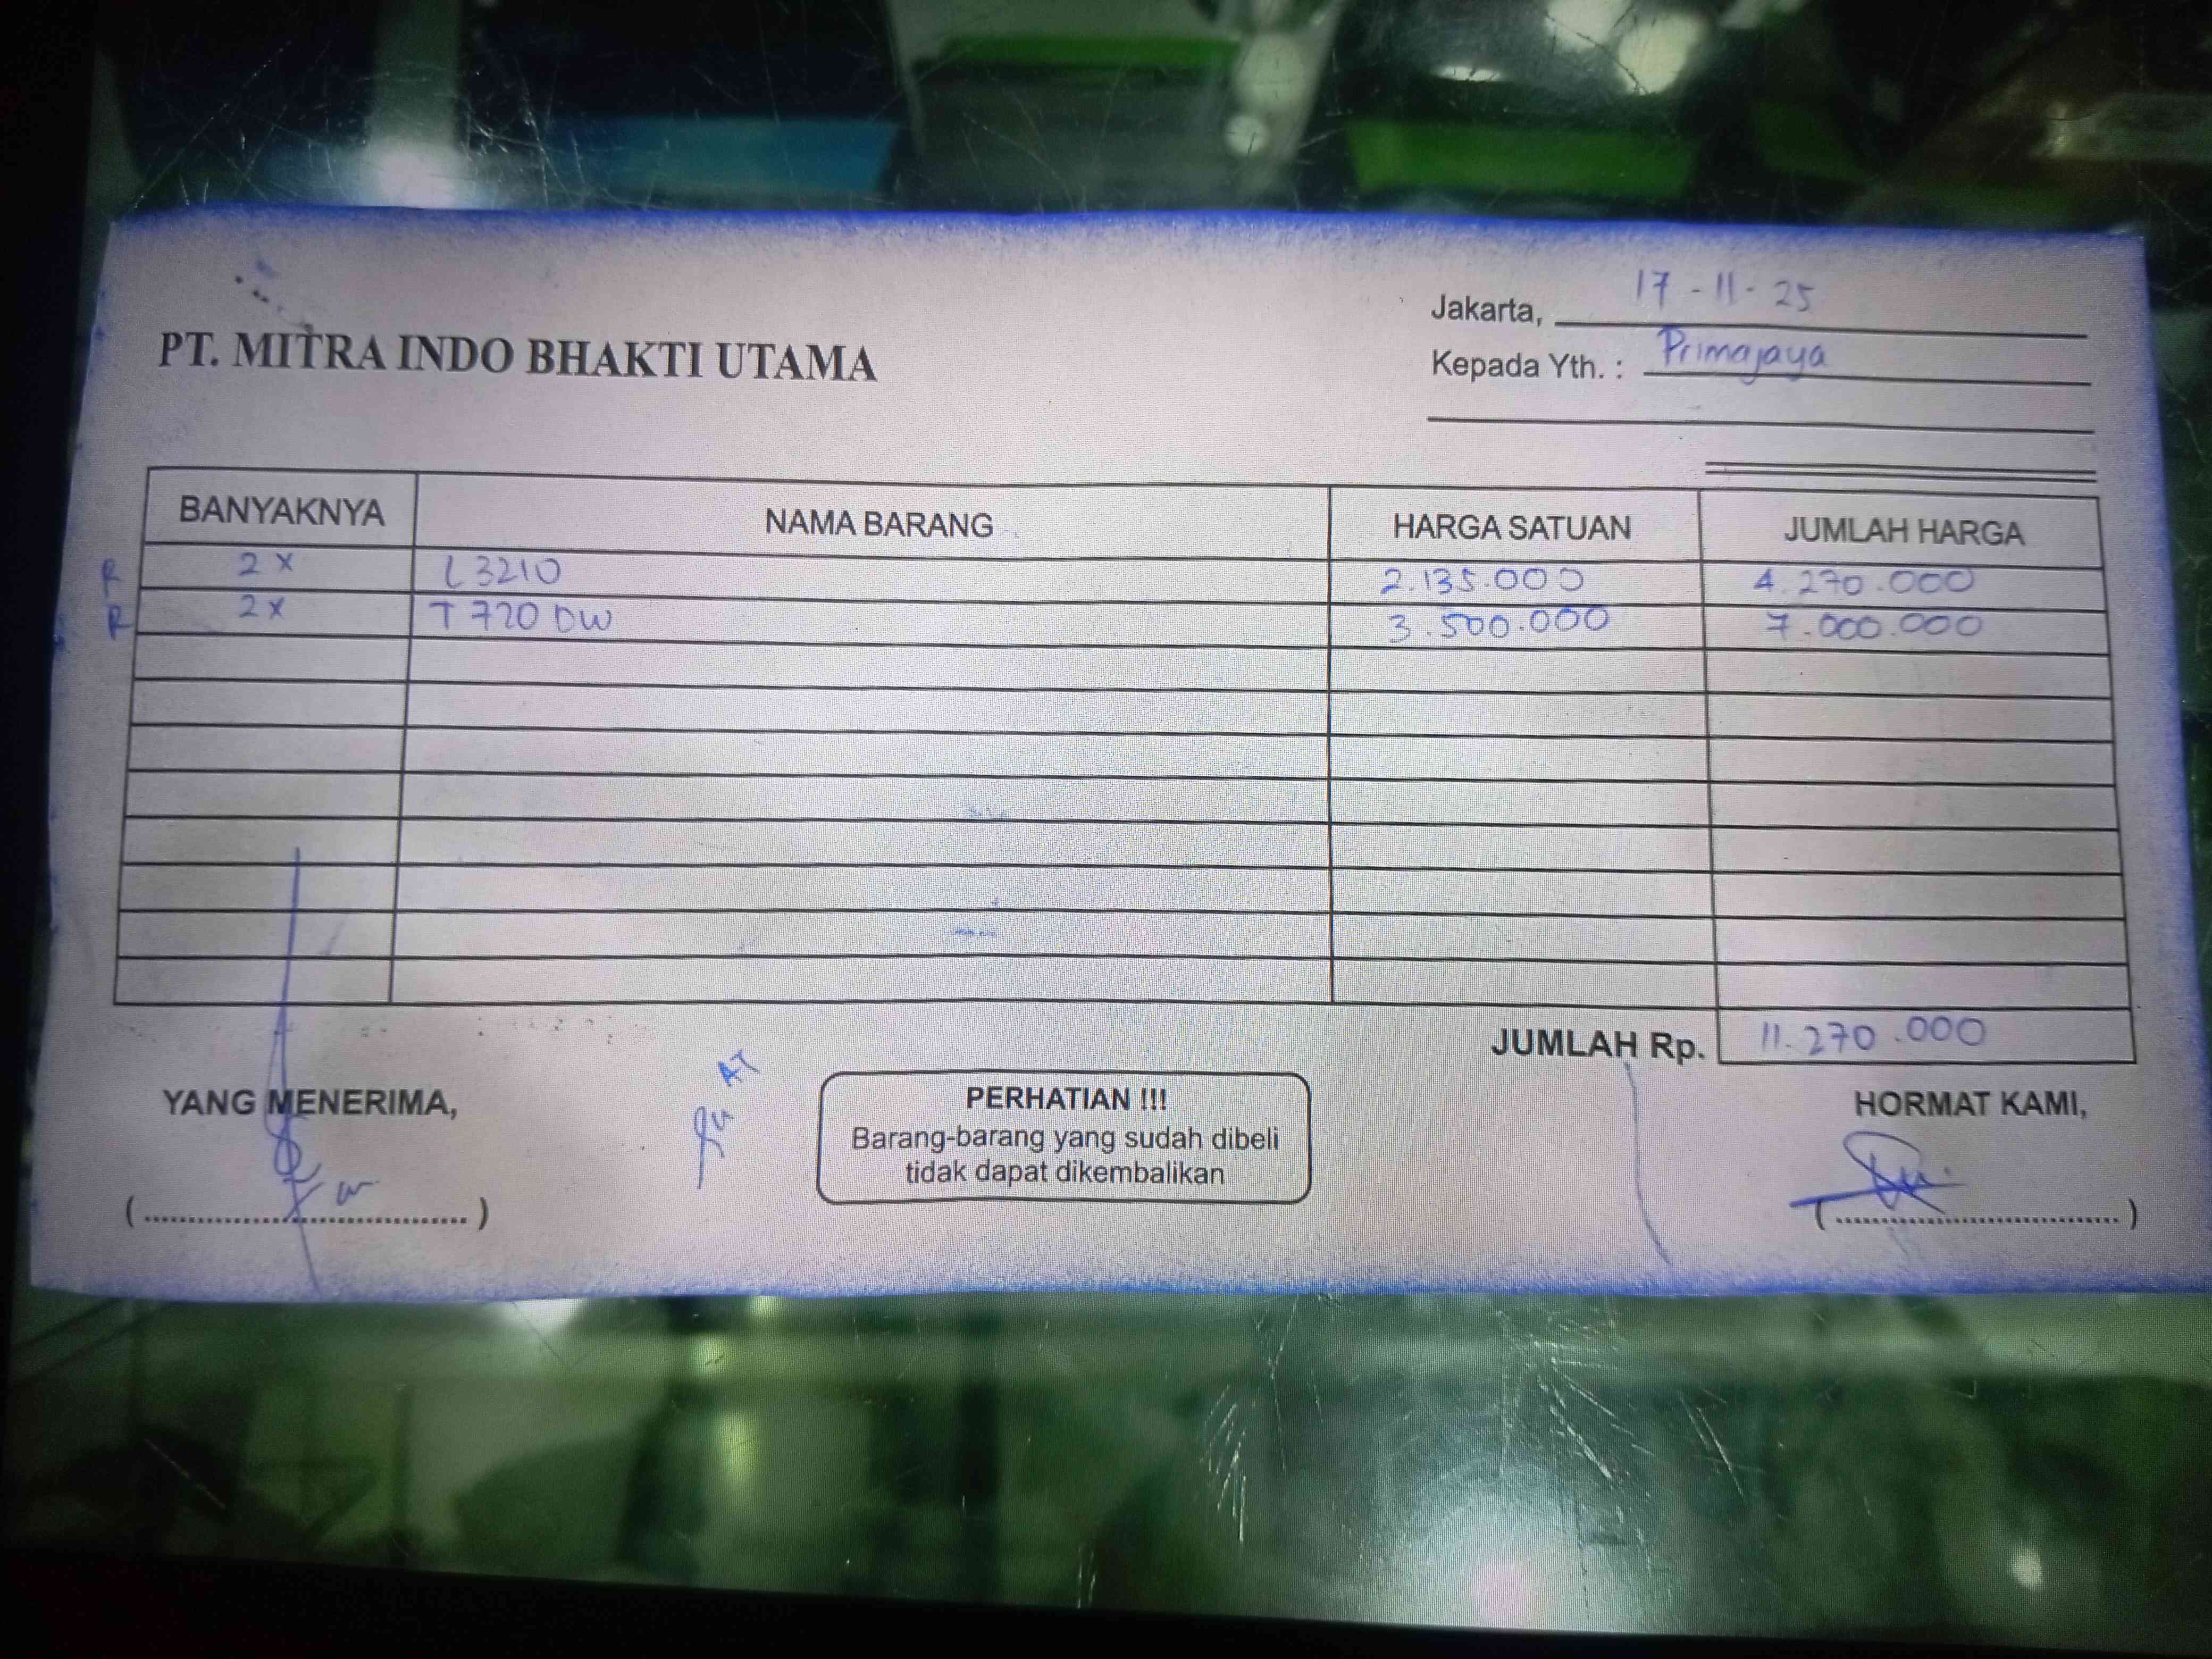 Jakarta, 17-11-25
PT. MITRA INDO BHAKTI UTAMA
Kepada Yth. : Primajaya
BANYAKNYA NAMA BARANG HARGA SATUAN JUMLAH HARGA
R 2 x L3210 2.135.000 4.270.000
R 2x T720 DW 3.500.000 7.000.000
JUMLAH Rp. 11.270.000
YANG MENERIMA,
AT
PERHATIAN !!!
Barang-barang yang sudah dibeli
tidak dapat dikembalikan
HORMAT KAMI,